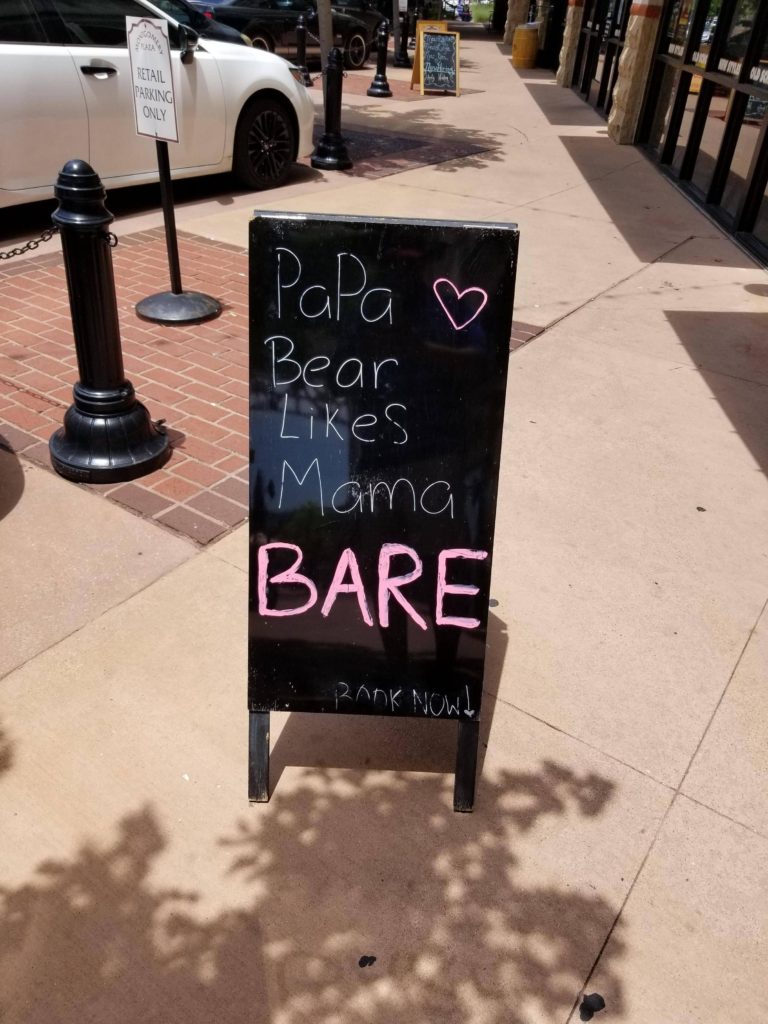 MONTGOMERY
PLAZA
RETAIL
PARKING
ONLY
PaPa
Bear
Likes
Mama
BARE
BOOK NOW!